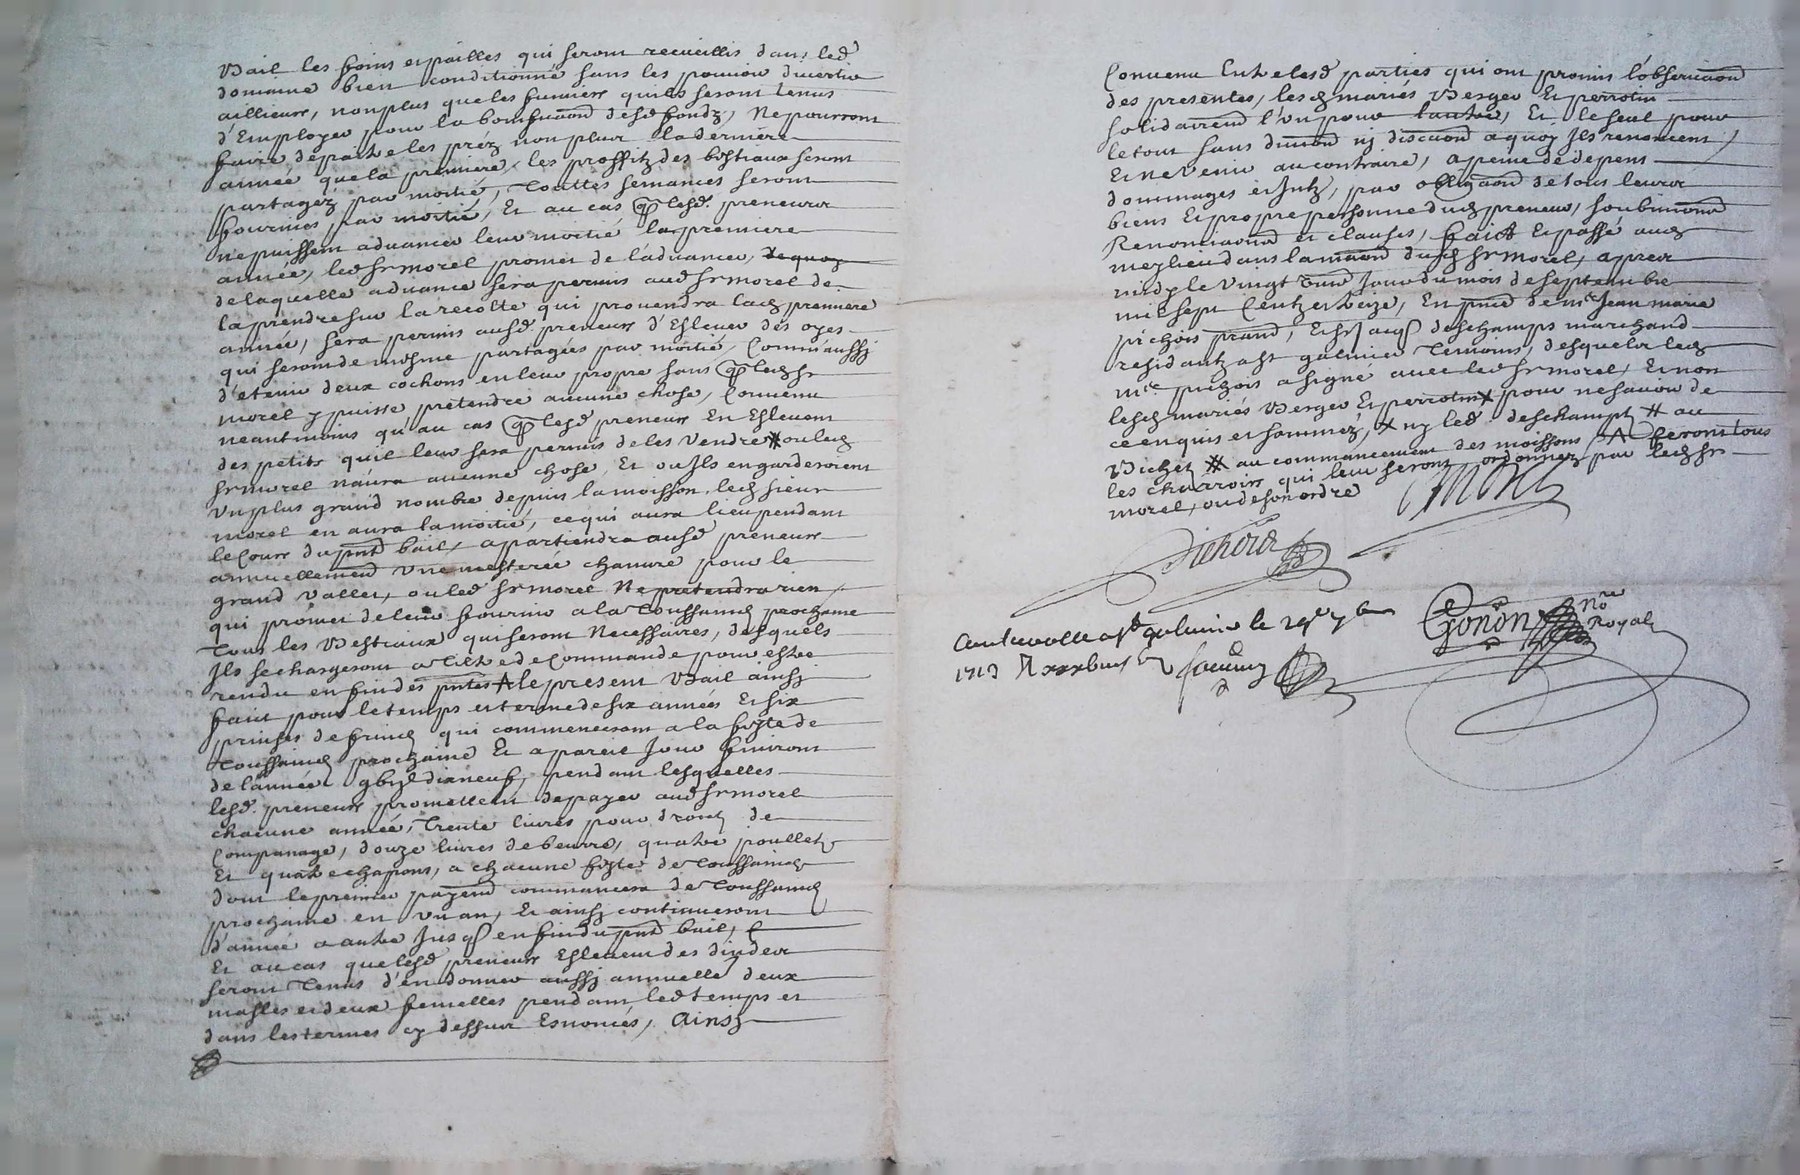 Bail les foins et pailles qui seront recueillis dans led
domaine bien conditionné sans les pouvoir divertir
aillieurs, nonplus que les fumiers quils seront tenus
d'Employer pour la bonificaõn desd fondz, Ne pourront
faire depaitre les préz non plus la derniere
année que la premiere, les proffitz des bestiaux seront
partagéz par moitié, Touttes semances seront
fournies par moitié, Et au cas q lesd. preneurs
ne puissent advancer leur moitié la premiere
année, led sr morel promet de l'advancer, de quoy
de laquelle advance sera permis aud sr morel de
la prendre sur la recolte qui proviendra lad premiere
année, sera permis ausd preneurs d'Eslever des oyes
qui seront de mesme partagées par moitié, Comm'aussy
d'etenir deux cochons en leur propre sans q led sr
morel y puisse pretendre aucune chose, Convenu
neantmoins qu'au cas q lesd preneurs En Eslevent
des petits quil leur sera permis de les vendre # ou led
sr morel n'aura aucune chose, Et ou Ils en garderoient
un plus grand nombre depuis la moisson, led sieur
morel en aura la moitié, ce qui aura lieu pendant
le Cours du pnt bail, apartiendra ausd preneurs
annuellement une mesterée chanvre pour le
grand vallet, ou led sr morel Ne pretendra rien,
qui promet de leur fournir a la Toussaint prochaine
Tous les Bestiaux qui seront Necessaires, desquels
Ils se chargeront a Titre de Commande pour estre
rendu en fin des pntes A le present Bail ainsy
fait pour le temps et terme de six années Et six
prinses de fruict qui commenceront a la feste de
Toussainct prochaine Et a pareil Jour finiront
de l'année dixneuf, pendant lesquelles
lesd. preneurs promettent de payer aud sr morel
chacune année, Trente livres pour droit de
Companage, douze livres de beurre, quatre poullets
Et quatre chapons, a chacune feste de Toussainct
dont le premier payemt commancera de Toussainct
prochaine en un an, Et ainsy continueront
d'année a autre Jusq en fin du pnt bail,
Et au cas que lesd preneurs Eslevent des dindes
seront Tenus d'en donner aussy annuelle deux
masles et deux femelles pendant led temps et
dans les termes cy dessus Enoncés, Ainsy
Convenu Entre lesd parties qui ont promis l'observaõn
des presentes, lesd mariés Berger Et perrotin
solidairemt l'un pour l'autre, Et le seul pour
le tout sans division ny discuõn a quoy Ils renoncent,
Et ne venir au contraire, a peine de depens
dommages et Intz, par obligaõn de tous leurs
biens Et propre personne dud preneur, soubmissions
Renonciaõns et clauses, fait Et passé aud
lieu dans la maison dud sr morel, apres
midy le vingt Jour du mois de septembre
mil sept Centz et treize, En pnce de me Jean marie
pichois Et sr deschamps marchand
residantz a st galmier Temoins, desquels led
me pichois a signé avec led sr morel, Et non
lesd mariés Berger Et perrotin x pour ne sçavoir de
ce enquis et sommez, x ny led. deschampt # au
Bichet # au commancement des moissons A feront tous
les charrois qui leur seront ordonnez par led sr
morel, ou de son ordre
Morel
Pichois
Gonon No.re Royal
Controllé a st galmier le 29e 7bre
1713